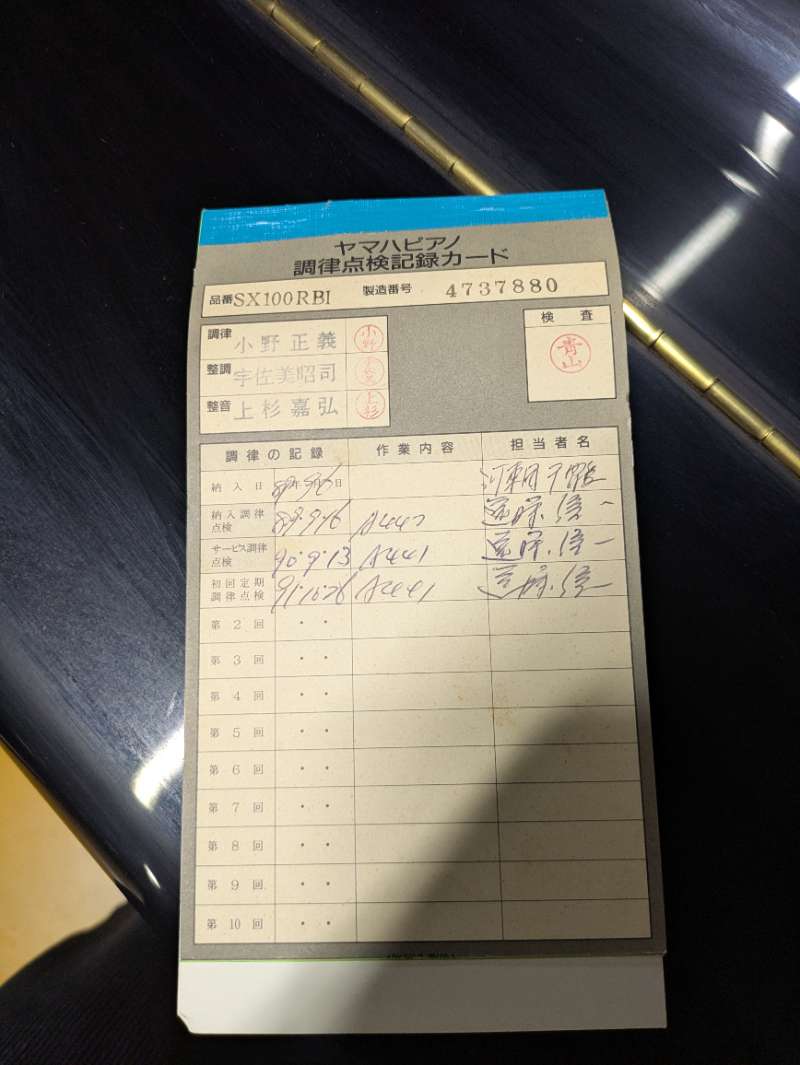 ヤマハピアノ
調律点検記録カード
品番 SX100RBI 製造番号 4737880
調律 小野正義 小野 検査
整調 宇佐美昭司 青山
整音 上杉嘉弘 上杉
調律の記録 作業内容 担当者名
納入日 年 月 日
納入調律点検 89.9.16 A442 遠藤信一
サービス調律点検 90.9.13 A441 遠藤信一
初回定期調律点検 91.10.26 A441 遠藤信一
第2回 ・・
第3回 ・・
第4回 ・・
第5回 ・・
第6回 ・・
第7回 ・・
第8回 ・・
第9回 ・・
第10回 ・・